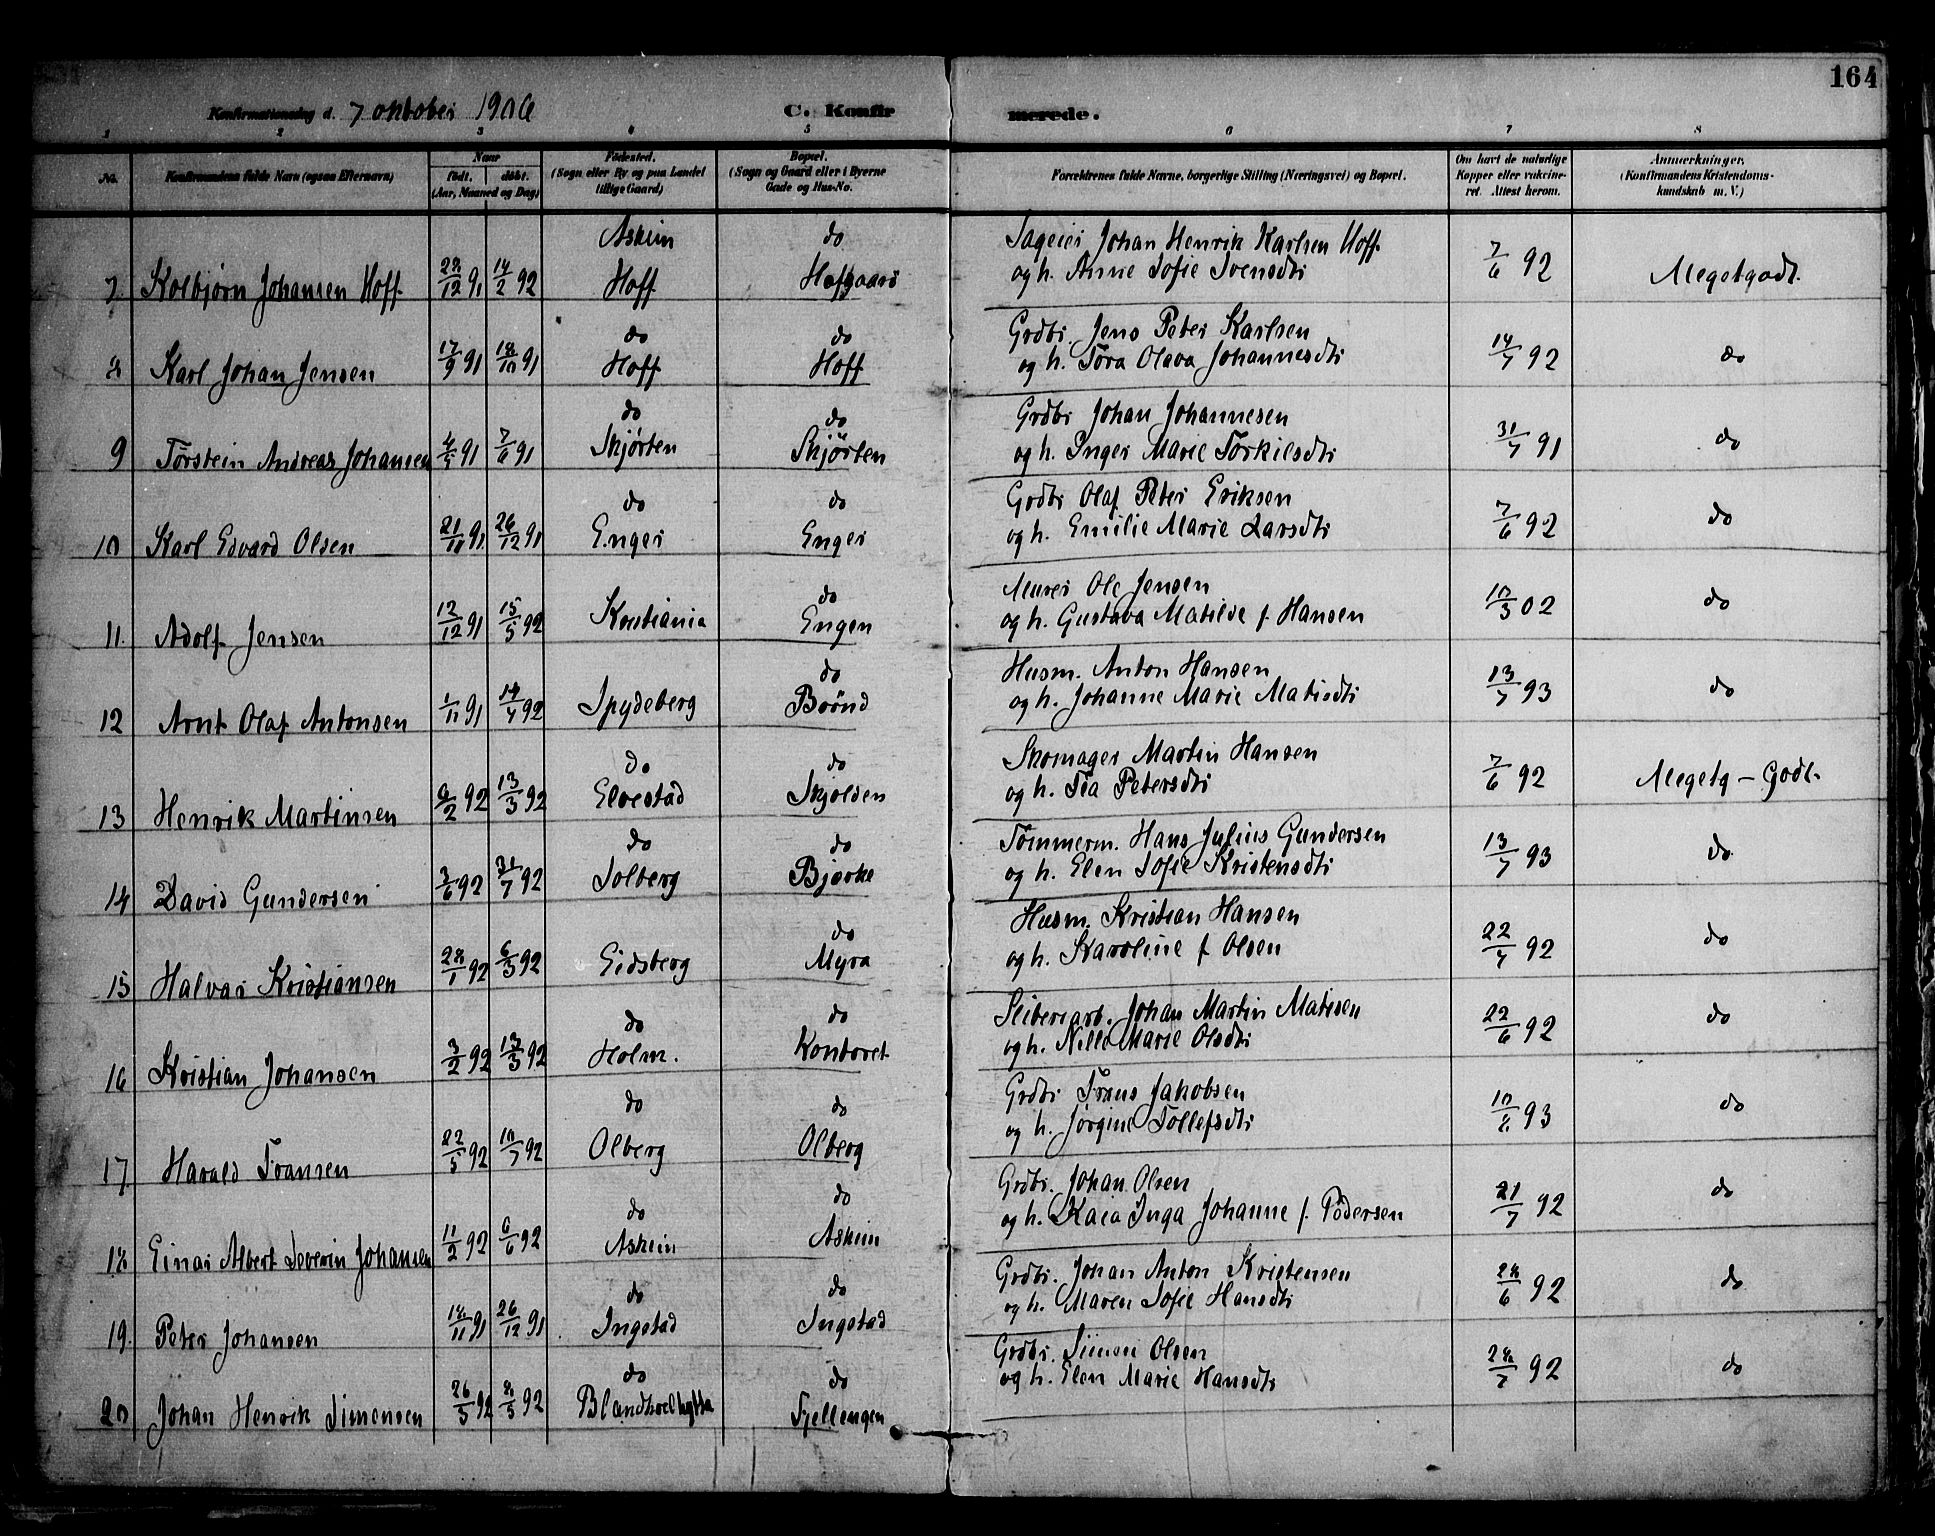 164
Konfirmationsdag d. 7 oktober 1906 C. Konfirmerede.
1 2 3 4 5 6 7 8
No. Konfirmandens fulde Navn (ogsaa Efternavn) Naar født. døbt. (Aar, Maaned og Dag) Fødested. (Sogn eller By og paa Landet tillige Gaard) Bopæl. (Sogn og Gaard eller i Byerne Gade og Hus-No. Forældrenes fulde Navne, borgerlige Stilling (Næringsvei) og Bopæl. Om havt de naturlige Kopper eller vakcineret. Attest herom. Anmærkninger. (Konfirmandens Kristendomskundskab m. V.)
Askim do Sageier Johan Henrik Karlsen Hoff
7. Kolbjørn Johansen Hoff 28/12 91 14/2 92 Hoff Hofgaard og h. Anne Sofie Svensdtr 7/6 92 Megetgodt.
do do Grdbr. Jens Peter Karlsen
8 Karl Johan Jensen 17/9 91 18/10 91 Hoff Hoff og h. Tora Olava Johannesdtr 14/7 92 do
do do Grdbr Johan Johannesen
9 Torstein Andreas Johansen 4/5 91 7/6 91 Skjørten Skjørten og h. Inger Marie Torkilsdtr 31/7 91 do
do do Grdbr Olaf Peter Eriksen
10 Karl Edvard Olsen 21/11 91 26/12 91 Enger Enger og h. Emilie Marie Larsdtr 7/6 92 do
do Murer Ole Jensen
11. Adolf Jensen 12/12 91 15/5 92 Kristiania Engen og h. Gustava Matilde f. Hansen 10/3 02 do
do Husm. Anton Hansen
12 Arnt Olaf Antonsen 1/11 91 14/4 92 Spydeberg Brønd og h. Johanne Marie Matisdtr 13/7 93 do
do do Skomager Martin Hansen
13 Henrik Martinsen 6/2 92 13/3 92 Elvestad Skjolden og h. Tea Petersdtr 7/6 92 Megetg – Godt.
do do Tømmerm. Hans Julius Gundersen
14 David Gundersen 3/6 92 31/7 92 Solberg Bjørke og h. Elen Sofie Kristensdtr 13/7 93 do
do Husm. Kristian Hansen
15 Halvar Kristiansen 28/1 92 6/3 92 Eidsberg Myra og h. Karoline f Olsen 22/7 92 do
do do Sliberiarb. Johan Martin Matisen
16 Kristian Johansen 3/2 92 13/3 92 Holm. Kontoret og h. Nille Marie Olsdtr 22/6 92 do
do do Grdbr Frans Jakobsen
17. Harald Fransen 22/5 92 10/7 92 Olberg Olberg og h. Jørgine Tollefsdtr 10/6 93 do
do do Grdbr. Johan Olsen
18. Einar Albert Severin Johansen 11/2 92 6/6 92 Askim Askim og h. Kaia Inga Johanne f. Pedersen 21/7 92 do
do do Grdbr. Johan Anton Kristensen
19. Peter Johansen 18/11 91 26/12 91 Ingstad Ingstad og h. Maren Sofie Hansdtr 28/6 92 do
do do Grdbr. Simen Olsen
20 Johan Henrik Simensen 26/3 92 8/5 92 Fjellengen og h. Elen Marie Hansdtr 28/7 92 do